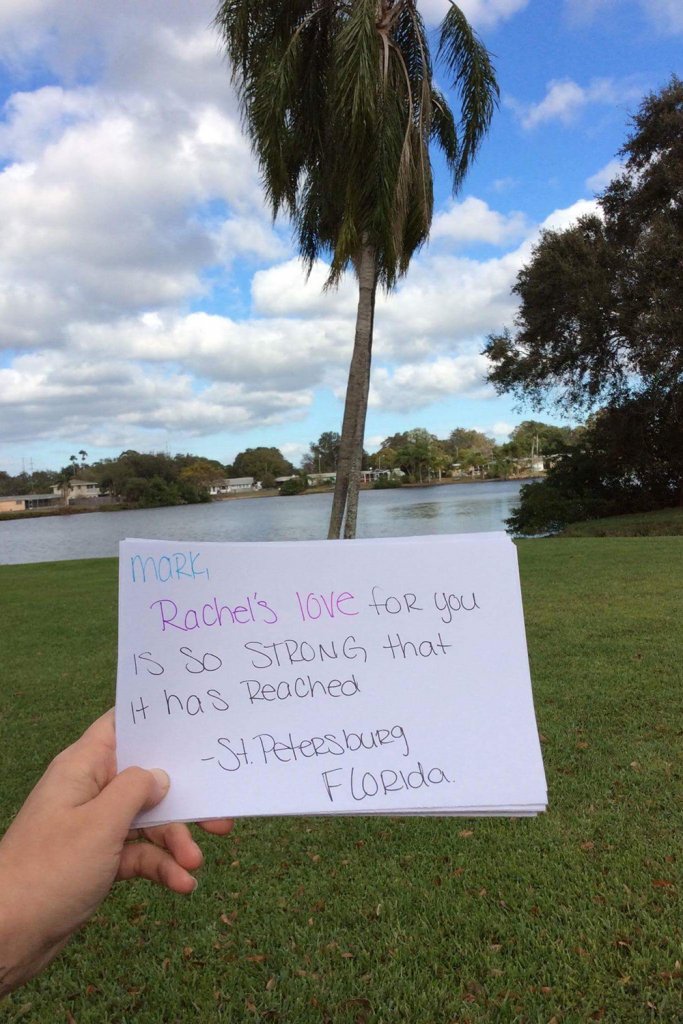 Mark,
Rachel's love for you
is so STRONG, that
it has Reached
-St. Petersburg
Florida.